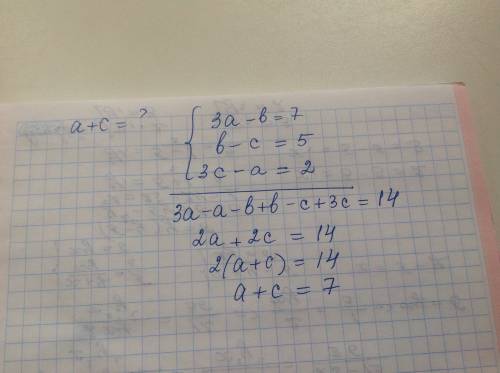 a+c=?
3a-в=7
в-c=5
3c-a=2
3a-a-в+в-c+3c=14
2a+2c=14
2(a+c)=14
a+c=7